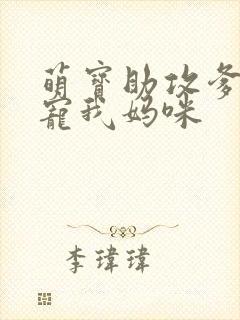 萌寳助攻爹
寵我妈咪
李瑋瑋